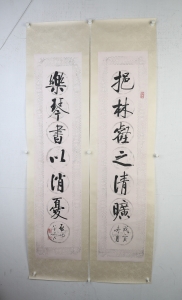 挹林壑之清曠
樂琴書以消憂